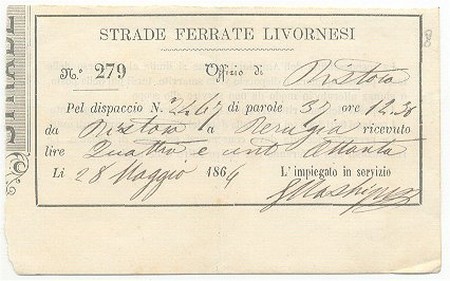 STRADE FERRATE LIVORNESI
N.° 279 Offizio di Pistoia
Pel dispaccio N. 2467 di parole 37 ore 12.30
da Pistoia a Perugia ricevuto
lire Quattro e cent Ottanta
Li 28 Maggio 1864 L'impiegato in servizio